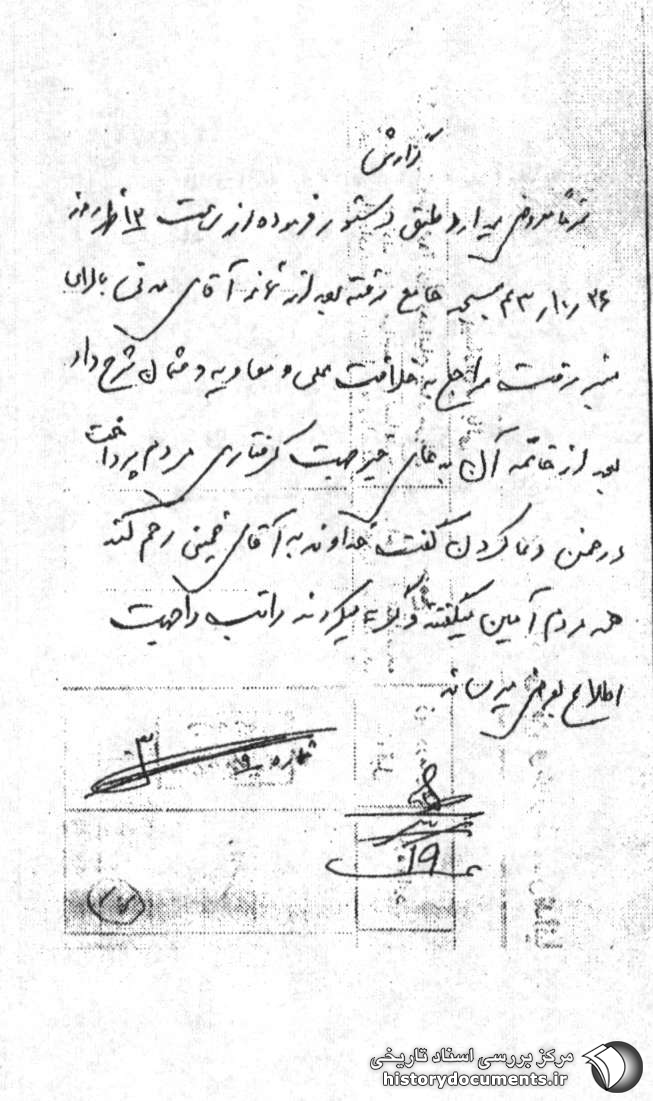 گزارش
شرفا معروض میدارد طبق دستور فرموده از ساعت ۱۳ ظهر روز
۲۶ر۱۰ر۴۳ بمسجد جامع رفته بعد از نماز آقای مدنی بالای
منبر رفت راجع به خلافت علی و معاویه و عثمان شرح داد
بعد از خاتمه آن به جای صحبت گرفتاری مردم پرداخت
درضمن دعا کردن گفت خداوند به آقای خمینی رحم کند
همه مردم آمین میگفتند و گریه میکردند مراتب را جهت
اطلاع بعرض میرساند
شماره ۹
۳
۱۹
مرکز بررسی اسناد تاریخی
historydocuments.ir